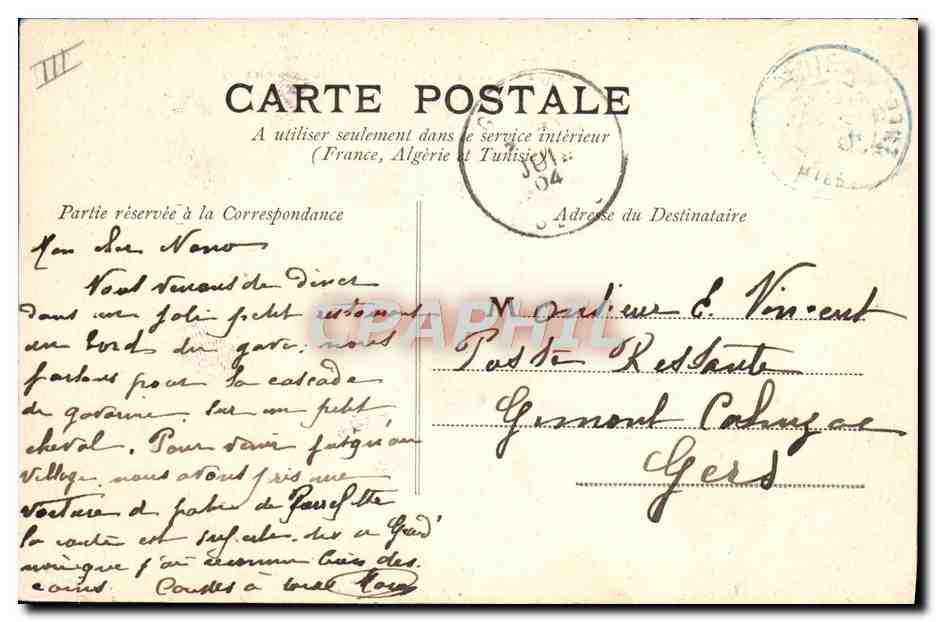 III
CARTE POSTALE
A utiliser seulement dans le service intérieur
(France, Algérie et Tunisie)
JUIL
04
Partie réservée à la Correspondance
Adresse du Destinataire
Mon cher Nono
Nous venons de diner
dans un joli petit restaurant
au bord du gave. nous
partons pour la cascade
de gavarnie sur un petit
cheval. Pour venir jusqu'au
village nous avons pris une
voiture à
la route est superbe
j'ai reconnu bien des
coins.
Monsieur E. Vincent
Poste Restante
Gimont Cahuzac
Gers
CPAPHIL